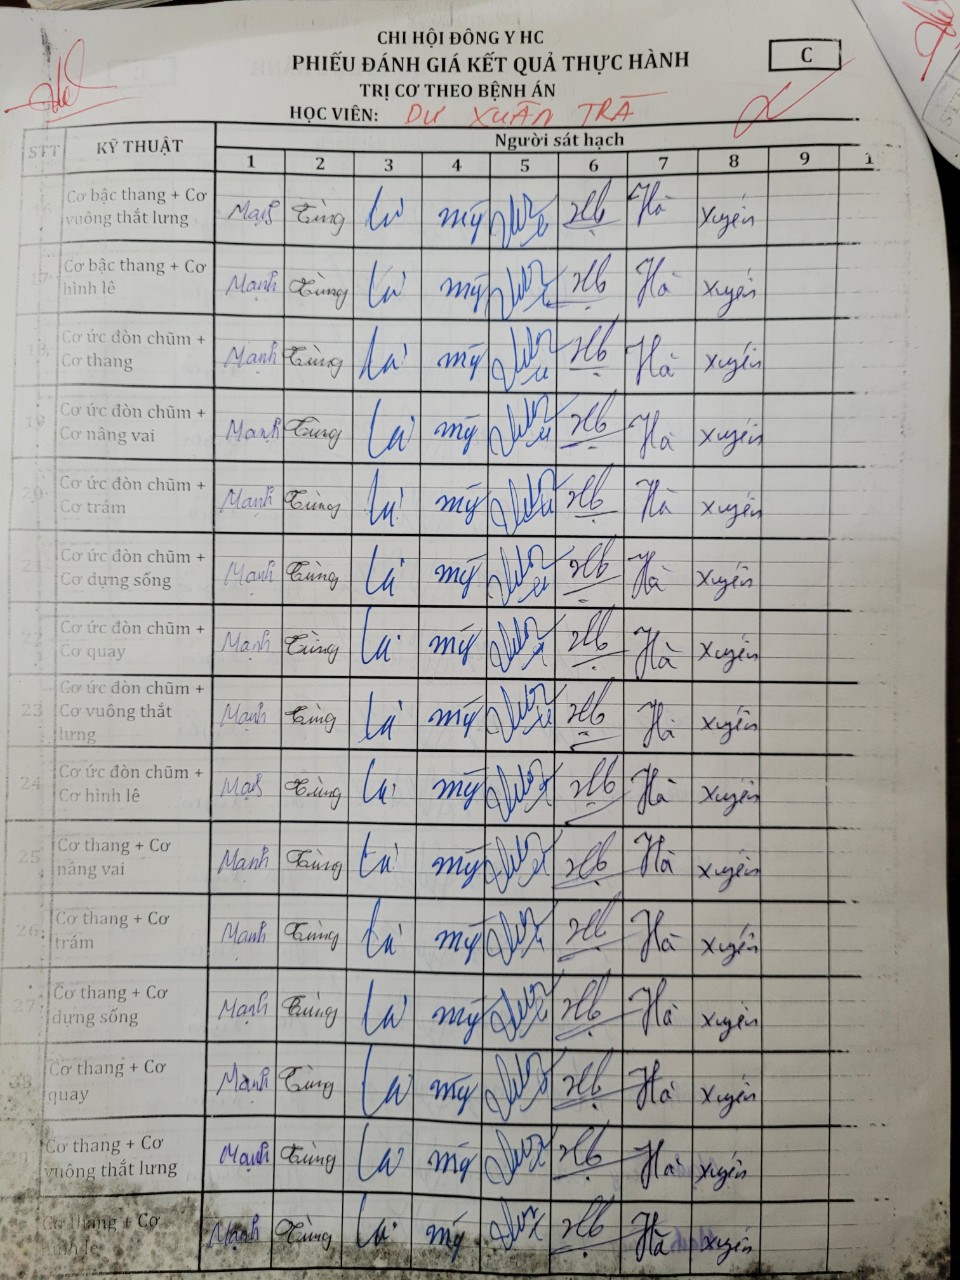 CHI HỘI ĐÔNG Y HC
PHIẾU ĐÁNH GIÁ KẾT QUẢ THỰC HÀNH
C
TRỊ CƠ THEO BỆNH ÁN
HỌC VIÊN: DƯ XUÂN TRÀ
STT KỸ THUẬT Người sát hạch
1 2 3 4 5 6 7 8 9 1
Cơ bậc thang + Cơ
vuông thắt lưng Mạnh Tùng Lư mỹ Hà Xuyến
17 Cơ bậc thang + Cơ
hình lê Mạnh Tùng Lư mỹ Hà Xuyến
Cơ ức đòn chũm +
Cơ thang Mạnh Tùng Lư mỹ Hà Xuyến
19 Cơ ức đòn chũm +
Cơ nâng vai Mạnh Tùng Lư mỹ Hà Xuyến
20 Cơ ức đòn chũm +
Cơ trám Mạnh Tùng Lư mỹ Hà Xuyến
21 Cơ ức đòn chũm +
Cơ dựng sống Mạnh Tùng Lư mỹ Hà Xuyến
22 Cơ ức đòn chũm +
Cơ quay Mạnh Tùng Lư mỹ Hà Xuyến
23 Cơ ức đòn chũm +
Cơ vuông thắt
lưng Mạnh Tùng Lư mỹ Hà Xuyến
24 Cơ ức đòn chũm +
Cơ hình lê Mạnh Tùng Lư mỹ Hà Xuyến
25 Cơ thang + Cơ
nâng vai Mạnh Tùng Lư mỹ Hà Xuyến
26 Cơ thang + Cơ
trám Mạnh Tùng Lư mỹ Hà Xuyến
27 Cơ thang + Cơ
dựng sống Mạnh Tùng Lư mỹ Hà Xuyến
Cơ thang + Cơ
quay Mạnh Tùng Lư mỹ Hà Xuyến
Cơ thang + Cơ
vuông thắt lưng Mạnh Tùng Lư mỹ Hà Xuyến
Cơ thang + Cơ
hình lê Mạnh Tùng Lư mỹ Hà Xuyến